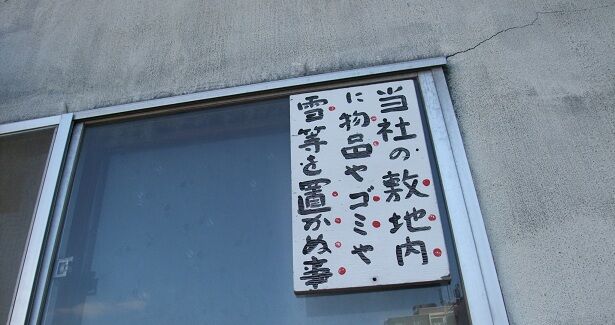 当社の敷地内
に物品やゴミや
雪等を置かぬ事